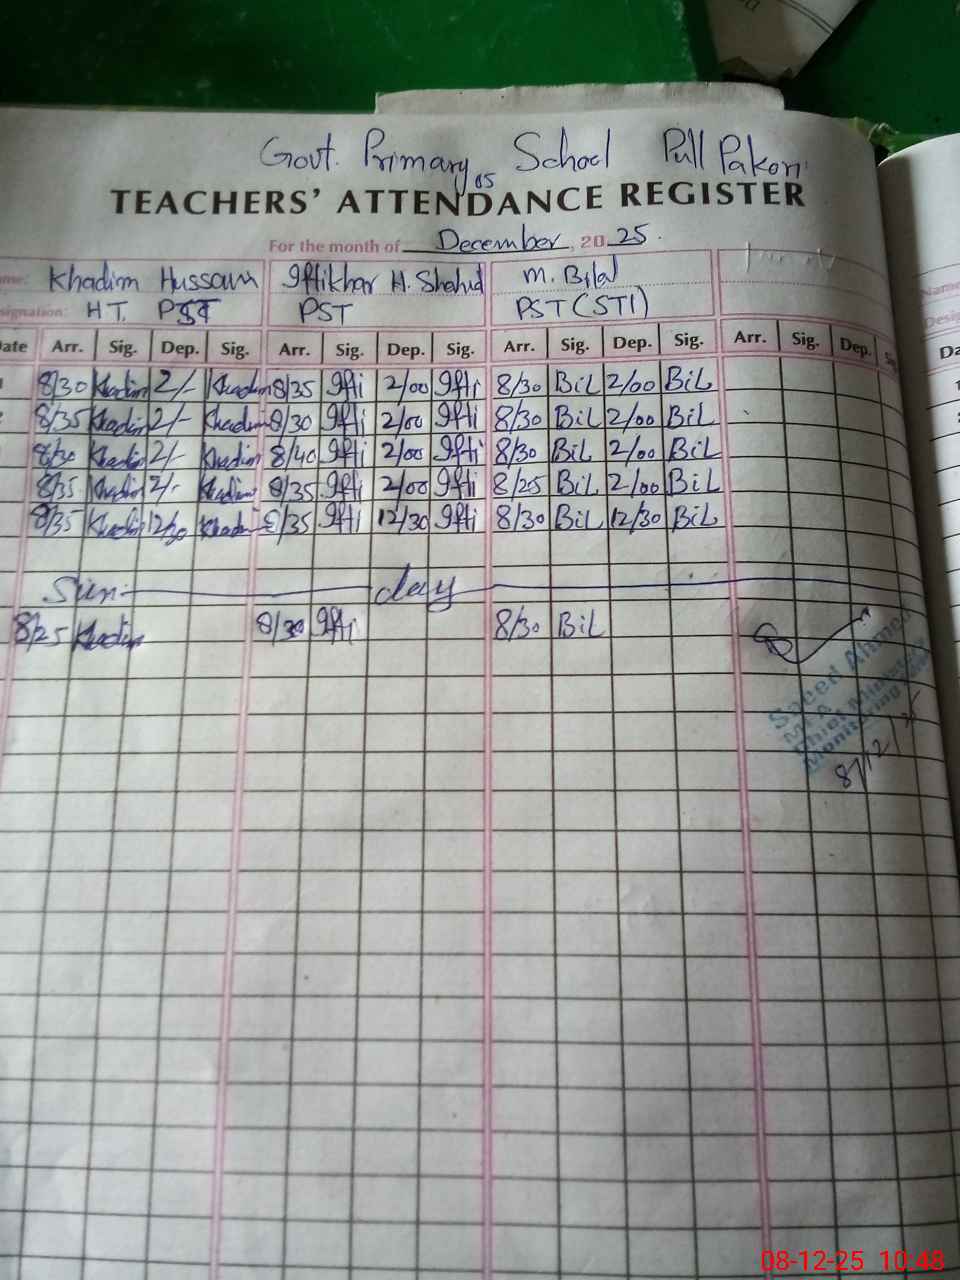 Govt. Primary School Pull Pakori
05
TEACHERS' ATTENDANCE REGISTER
For the month of December, 2025.
me: Khadim Hussain Iftikhar H. Shahid M. Bilal Name
signation: H.T. PST PST PST (STI) Desig
ate Arr. Sig. Dep. Sig. Arr. Sig. Dep. Sig. Arr. Sig. Dep. Sig. Arr. Sig. Dep. S Da
8/30 Khadim 2/- Khadim 8/35 Ifti 2/00 Ifti 8/30 BiL 2/00 BiL
8/35 Khadim 2/- Khadim 8/30 Ifti 2/00 Ifti 8/30 BiL 2/00 BiL
8/30 Khadim 2/- Khadim 8/40 Ifti 2/00 Ifti 8/30 BiL 2/00 BiL
8/35 Khadim 2/- Khadim 8/35 Ifti 2/00 Ifti 8/25 BiL 2/00 BiL
8/35 Khadim 12/30 Khadim 8/35 Ifti 12/30 Ifti 8/30 BiL 12/30 BiL
Sun day
8/25 Khadim 8/30 Ifti 8/30 BiL
Saeed Ahmed
MEA
Chief Minister
Monitoring
8/12
08-12-25 10:48